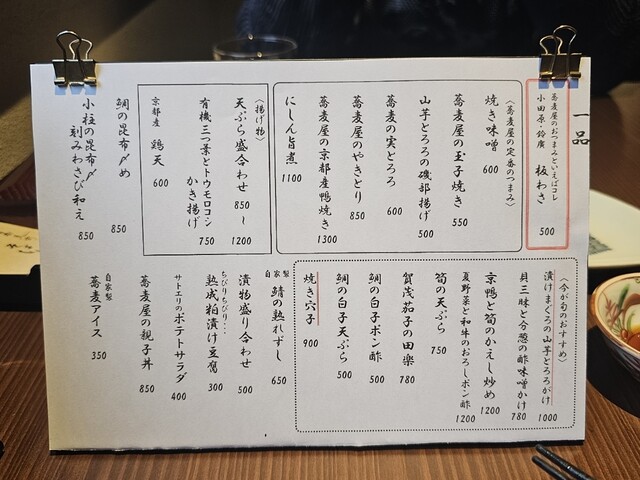 一品
蕎麦屋のおつまみといえばコレ
小田原・鈴廣 板わさ 500
〈蕎麦屋の定番のつまみ〉
焼き味噌 600
蕎麦屋の玉子焼き 550
山芋とろろの磯部揚げ 500
蕎麦の実とろろ 600
蕎麦屋のやきとり 850
蕎麦屋の京都産鴨焼き 1300
にしん旨煮 1100
〈揚げ物〉
天ぷら盛合わせ 850〜1200
有機三つ葉とトウモロコシ
かき揚げ 750
京都産 鶏天 600
鯛の昆布〆め 850
小柱の昆布〆
刻みわさび和え 850
〈今が旬のおすすめ〉
漬けまぐろの山芋とろろがけ 1000
貝三昧と分葱の酢味噌かけ 780
京鴨と筍のかえし炒め 1200
夏野菜と和牛のおろしポン酢 1200
筍の天ぷら 750
賀茂茄子の田楽 780
鯛の白子ポン酢 500
鯛の白子天ぷら 500
焼き穴子 900
自家製 鯖の熟れずし 650
漬物盛り合わせ 500
ちびりちびり…
熟成粕漬け豆腐 300
サトエリのポテトサラダ 400
蕎麦屋の親子丼 850
自家製
蕎麦アイス 350